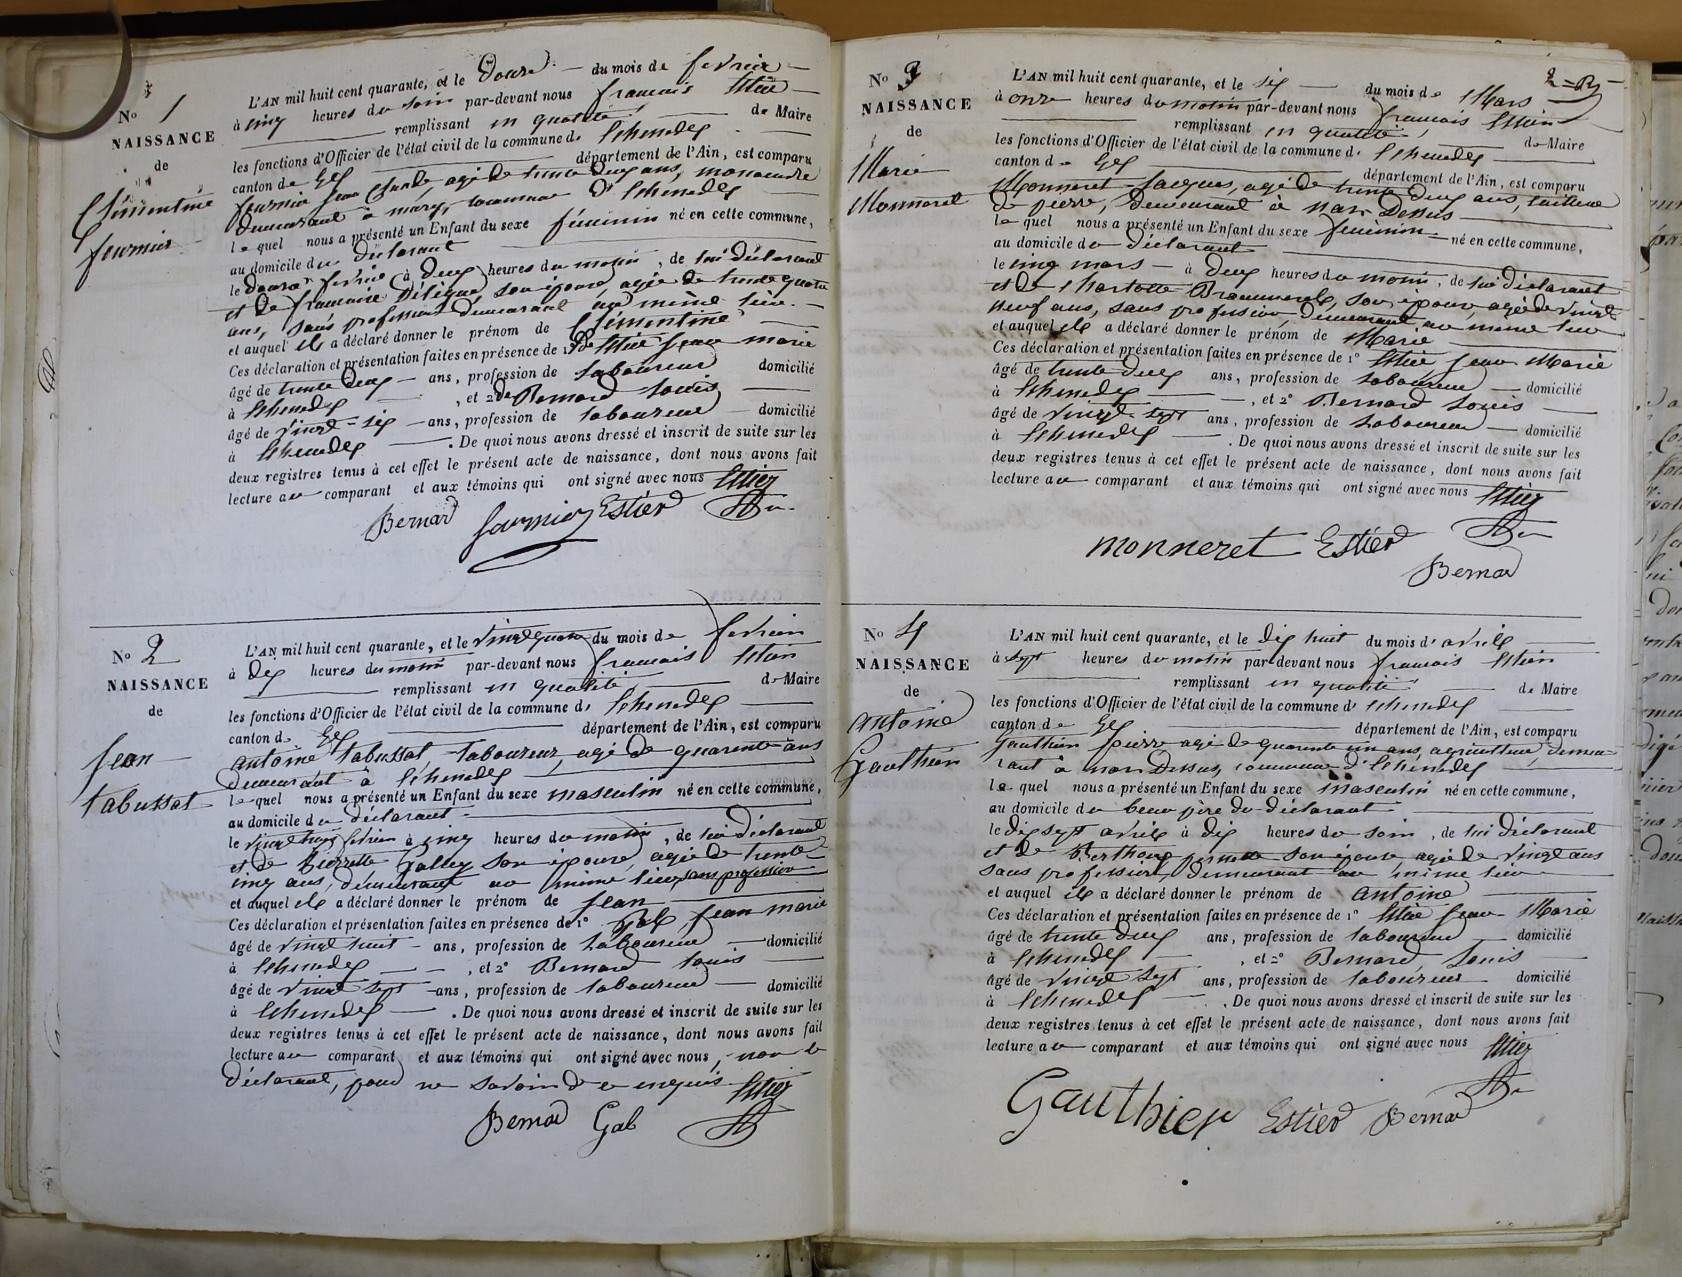 No 1
NAISSANCE
de
Clémentine
fournier
L'AN mil huit cent quarante, et le Douze du mois de fevrier
à cinq heures du soir par-devant nous francois Estier
remplissant en qualité de Maire
les fonctions d'Officier de l'état civil de la commune d' Echenevex
canton de Gex département de l'Ain, est comparu
fournier Jean Claude, agé de trente deux ans, manoeuvre
demeurant à mury, commune d'Echenevex
lequel nous a présenté un Enfant du sexe féminin né en cette commune,
au domicile du déclarant
le douze fevrier à deux heures du matin, de lui déclarant
et de francoise son épouse, agée de trente quatre
ans, sans profession demeurant au même lieu.
et auquel il a déclaré donner le prénom de Clémentine
Ces déclaration et présentation faites en présence de 1° Estier Jean marie
âgé de trente deux ans, profession de laboureur domicilié
à Echenevex, et 2° de Bernard Louis
âgé de vingt-six ans, profession de laboureur domicilié
à Echenevex. De quoi nous avons dressé et inscrit de suite sur les
deux registres tenus à cet effet le présent acte de naissance, dont nous avons fait
lecture au comparant et aux témoins qui ont signé avec nous Estier
Bernard fournier Estier
No 2
NAISSANCE
de
Jean
tabussat
L'AN mil huit cent quarante, et le vingt quatre du mois de fevrier
à dix heures du matin par-devant nous francois Estier
remplissant en qualité de Maire
les fonctions d'Officier de l'état civil de la commune d' Echenevex
canton de Gex département de l'Ain, est comparu
antoine tabussat, laboureur, agé de quarente ans
demeurant à Echenevex
lequel nous a présenté un Enfant du sexe masculin né en cette commune,
au domicile du déclarant
le vingt trois fevrier à cinq heures du matin, de lui déclarant
et de Pierrette Galley son épouse, agée de trente
cinq ans, demeurant au même lieu, sans profession
et auquel il a déclaré donner le prénom de Jean
Ces déclaration et présentation faites en présence de 1° Gab Jean marie
âgé de vingt huit ans, profession de laboureur domicilié
à Echenevex, et 2° Bernard Louis
âgé de vingt sept ans, profession de laboureur domicilié
à Echenevex. De quoi nous avons dressé et inscrit de suite sur les
deux registres tenus à cet effet le présent acte de naissance, dont nous avons fait
lecture au comparant et aux témoins qui ont signé avec nous, non le
déclarant, pour ne savoir de ce enquis. Estier
Bernard Gab
No 3
NAISSANCE
de
Marie
Monneret
L'AN mil huit cent quarante, et le six du mois de Mars
à onze heures du matin par-devant nous francois Estier
remplissant en qualité de Maire
les fonctions d'Officier de l'état civil de la commune d' Echenevex
canton de Gex département de l'Ain, est comparu
Monneret Jacques, agé de trente deux ans, tailleur
de pierre, demeurant à Nax Dessus
lequel nous a présenté un Enfant du sexe feminin né en cette commune,
au domicile du déclarant
le cinq mars à deux heures du matin, de lui déclarant
et de Charlotte son épouse, agée de vingt
neuf ans, sans profession demeurant au même lieu
et auquel il a déclaré donner le prénom de Marie
Ces déclaration et présentation faites en présence de 1° Estier Jean Marie
âgé de trente deux ans, profession de laboureur domicilié
à Echenevex, et 2° Bernard Louis
âgé de vingt-sept ans, profession de laboureur domicilié
à Echenevex. De quoi nous avons dressé et inscrit de suite sur les
deux registres tenus à cet effet le présent acte de naissance, dont nous avons fait
lecture au comparant et aux témoins qui ont signé avec nous Estier
monneret Estier
Bernard
No 4
NAISSANCE
de
antoine
Gauthier
L'AN mil huit cent quarante, et le dix huit du mois d'avril
à sept heures du matin par-devant nous francois Estier
remplissant en qualité de Maire
les fonctions d'Officier de l'état civil de la commune d' Echenevex
canton de Gex département de l'Ain, est comparu
Gauthier pierre agé de quarente un ans, agriculteur, demeu-
rant à nax Dessus, commune d'Echenevex
lequel nous a présenté un Enfant du sexe masculin né en cette commune,
au domicile du beau père du déclarant
le dix sept avril à dix heures du soir, de lui déclarant
et de Berthoux pernette son épouse agée de vingt ans
sans profession, demeurant au même lieu
et auquel il a déclaré donner le prénom de antoine
Ces déclaration et présentation faites en présence de 1° Estier Jean Marie
âgé de trente deux ans, profession de laboureur domicilié
à Echenevex, et 2° Bernard Louis
âgé de vingt sept ans, profession de laboureur domicilié
à Echenevex. De quoi nous avons dressé et inscrit de suite sur les
deux registres tenus à cet effet le présent acte de naissance, dont nous avons fait
lecture au comparant et aux témoins qui ont signé avec nous Estier
Gauthier Estier Bernard